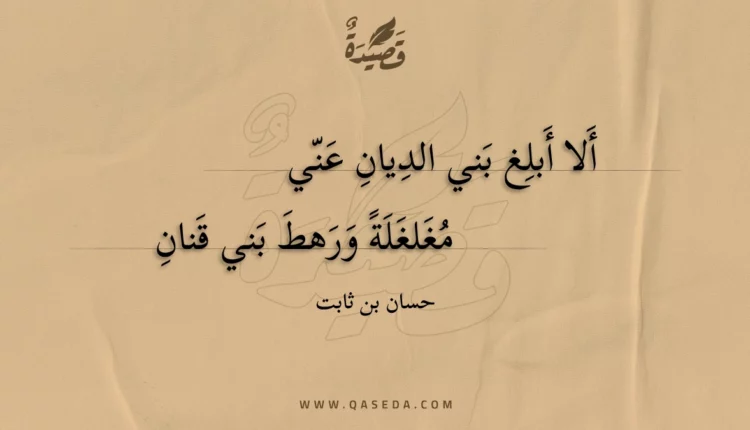 قَصِيْدَةٌ
أَلا أَبلِغ بَني الدِيانِ عَنّي
مُغَلغَلَةً وَرَهطَ بَني قَنانِ
حسان بن ثابت
WWW.QASEDA.COM